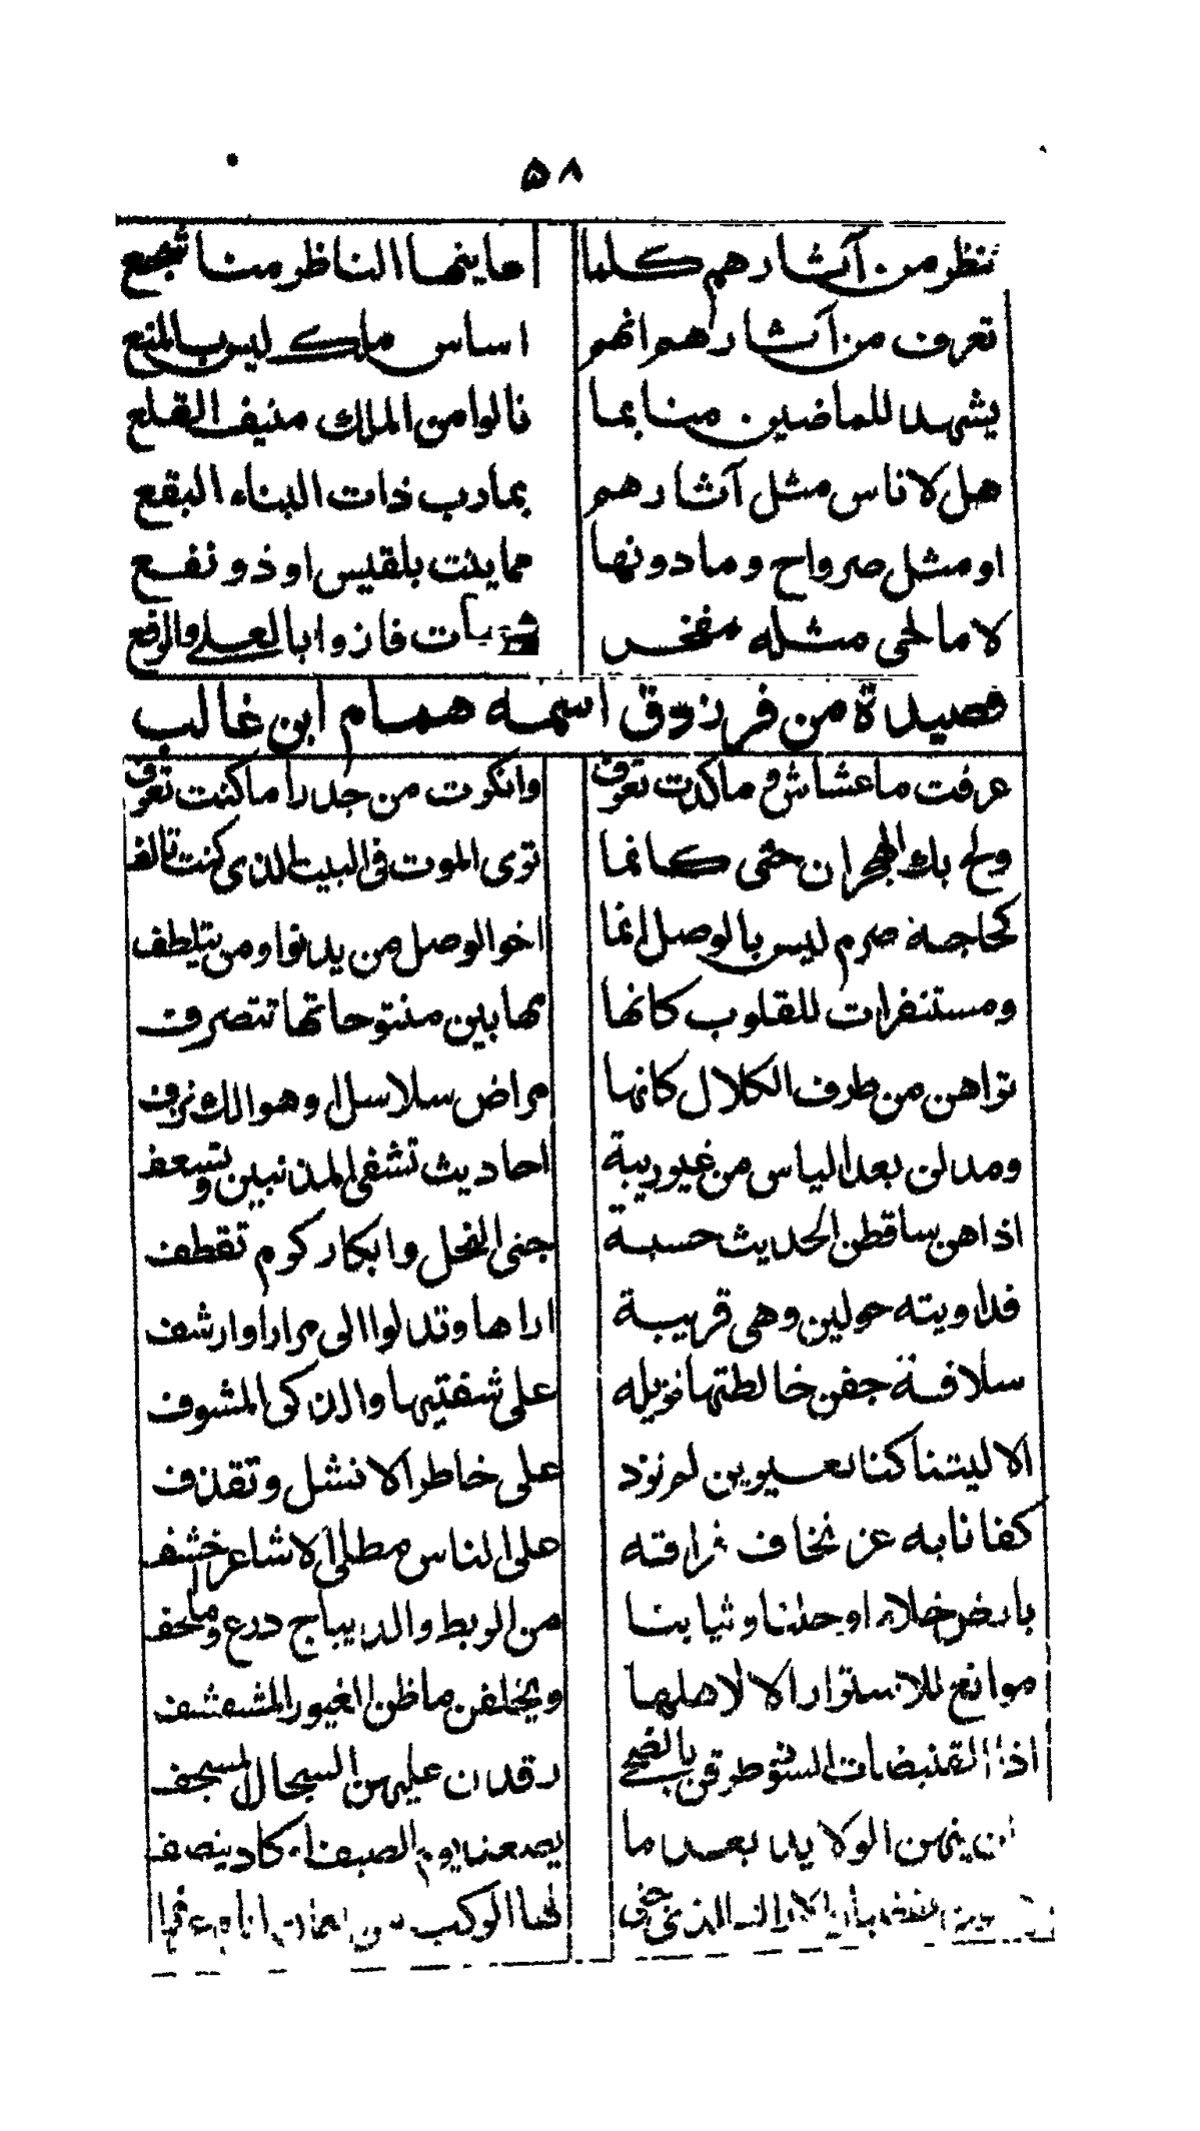 ۵۸
تنظر من آثارهم كلما عاينها الناظر منا تجمع
تعرف من آثارهم انهم اساس ملك ليس بالمتبع
يشهد للماضين منا بما نالوا من الملك منيف القلع
هل لاناس مثل آثارهم بمارب ذات البناء البقع
او مثل صرواح وما دونها مما بنت بلقيس او ذو نفع
لا ما لحى مثله مفخر فازوا بالعلى والرفع
قصيدة من فرزوق اسمه همام ابن غالب
عرفت ماعشاش وماكدت تعرف وانكرت من جدرا ماكنت تعرف
ولج بك الهجران حتى كانما توى الموت فى البيت الذى كنت تالف
كحاجة صرم ليس بالوصل انما اخوا الوصل من يدنوا ومن يتلطف
ومستنفرات للقلوب كانها تها بين منتوحاتها تتصرف
تواهن من طرف الكلال كانها مراض سلاسل او هوالك نزف
ومدلن بعد الياس من غيوريبة احاديث تشفى المذنبين وتسعف
اذاهن ساقطن الحديث حسبة جنى النحل وابكار كوم تقطف
فداويته حولين وهى قريبة اراها وتدلوا الى مرارا وارشف
سلافة جفن خالطتها نزيله على شفتيها والذكى المشوف
الا ليتنا كنا بعيوين لم نزد على خاطر الا نشل وتقذف
كفانا به عز نخاف قرافته على الناس مطلى الاشاعر خشف
بارض خلاء او حلنا وثيابنا من الربط والديباج درع وملحف
موانع للاستوار الا لاهلها ويخلفن ماظن الغيور المشفشف
اذا القنبضات السود طوقن بالضحى رقدن عليهن السجال المسجف
ينهن الولايد بعد ما يصعد يوم الصيف كاد ينصف